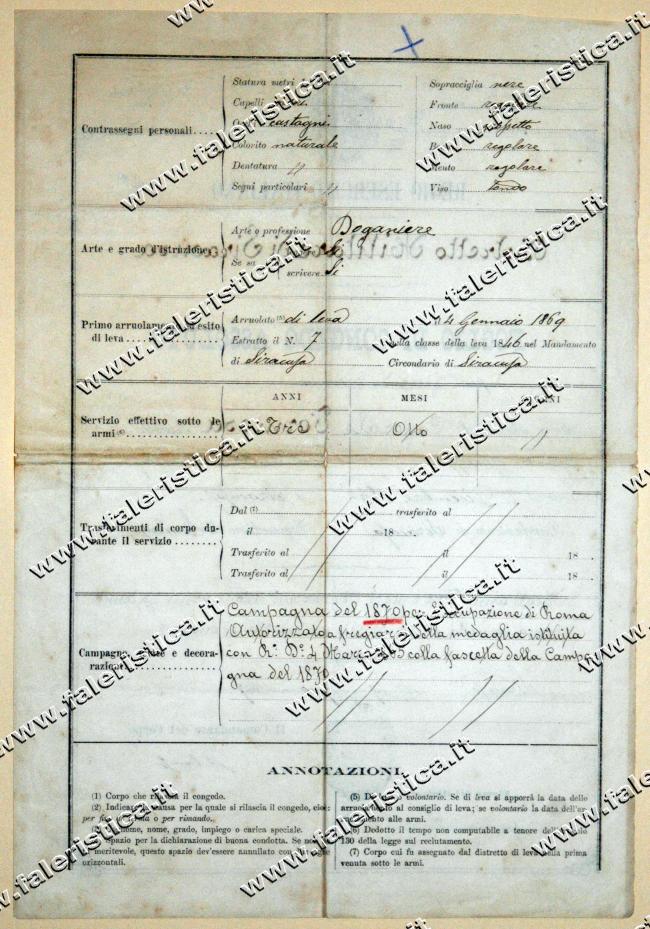 www.faleristica.it
Contrassegni personali
Statura metri
Capelli
castagni
Colorito naturale
Dentatura "
Segni particolari "
Sopracciglia nere
Fronte
Naso
regolare
Mento regolare
Viso tondo
Arte e grado d'istruzione
Arte o professione Doganiere
Se sa
scrivere Si
Primo arruolamento ed esito di leva
Arruolato (5) di leva 4 Gennaio 1869
Estratto il N. 7 nella classe della leva 1846 nel Mandamento
di Siracusa Circondario di Siracusa
ANNI MESI GIORNI
Servizio effettivo sotto le armi (6) Tre Otto "
Trasferimenti di corpo durante il servizio
Dal (7) trasferito al
il 18
Trasferito al il 18
Trasferito al il 18
Campagne, ferite e decorazioni
Campagna del 1870 per l'occupazione di Roma
Autorizzato a fregiarsi della medaglia istituita
con R.° D.° 4 Marzo colla fascetta della Campa
gna del 1870
ANNOTAZIONI.
(1) Corpo che rilascia il congedo.
(2) Indicare la causa per la quale si rilascia il congedo, cioè:
per fine di ferma o per rimando.
Cognome, nome, grado, impiego o carica speciale.
Spazio per la dichiarazione di buona condotta. Se non
è meritevole, questo spazio dev'essere annullato con due righe
orizzontali.
(5) Di leva o volontario. Se di leva si apporrà la data dell'
arruolamento al consiglio di leva; se volontario la data dell'ar-
ruolamento alle armi.
(6) Dedotto il tempo non computabile a tenore dell'articolo
130 della legge sul reclutamento.
(7) Corpo cui fu assegnato dal distretto di leva nella prima
venuta sotto le armi.